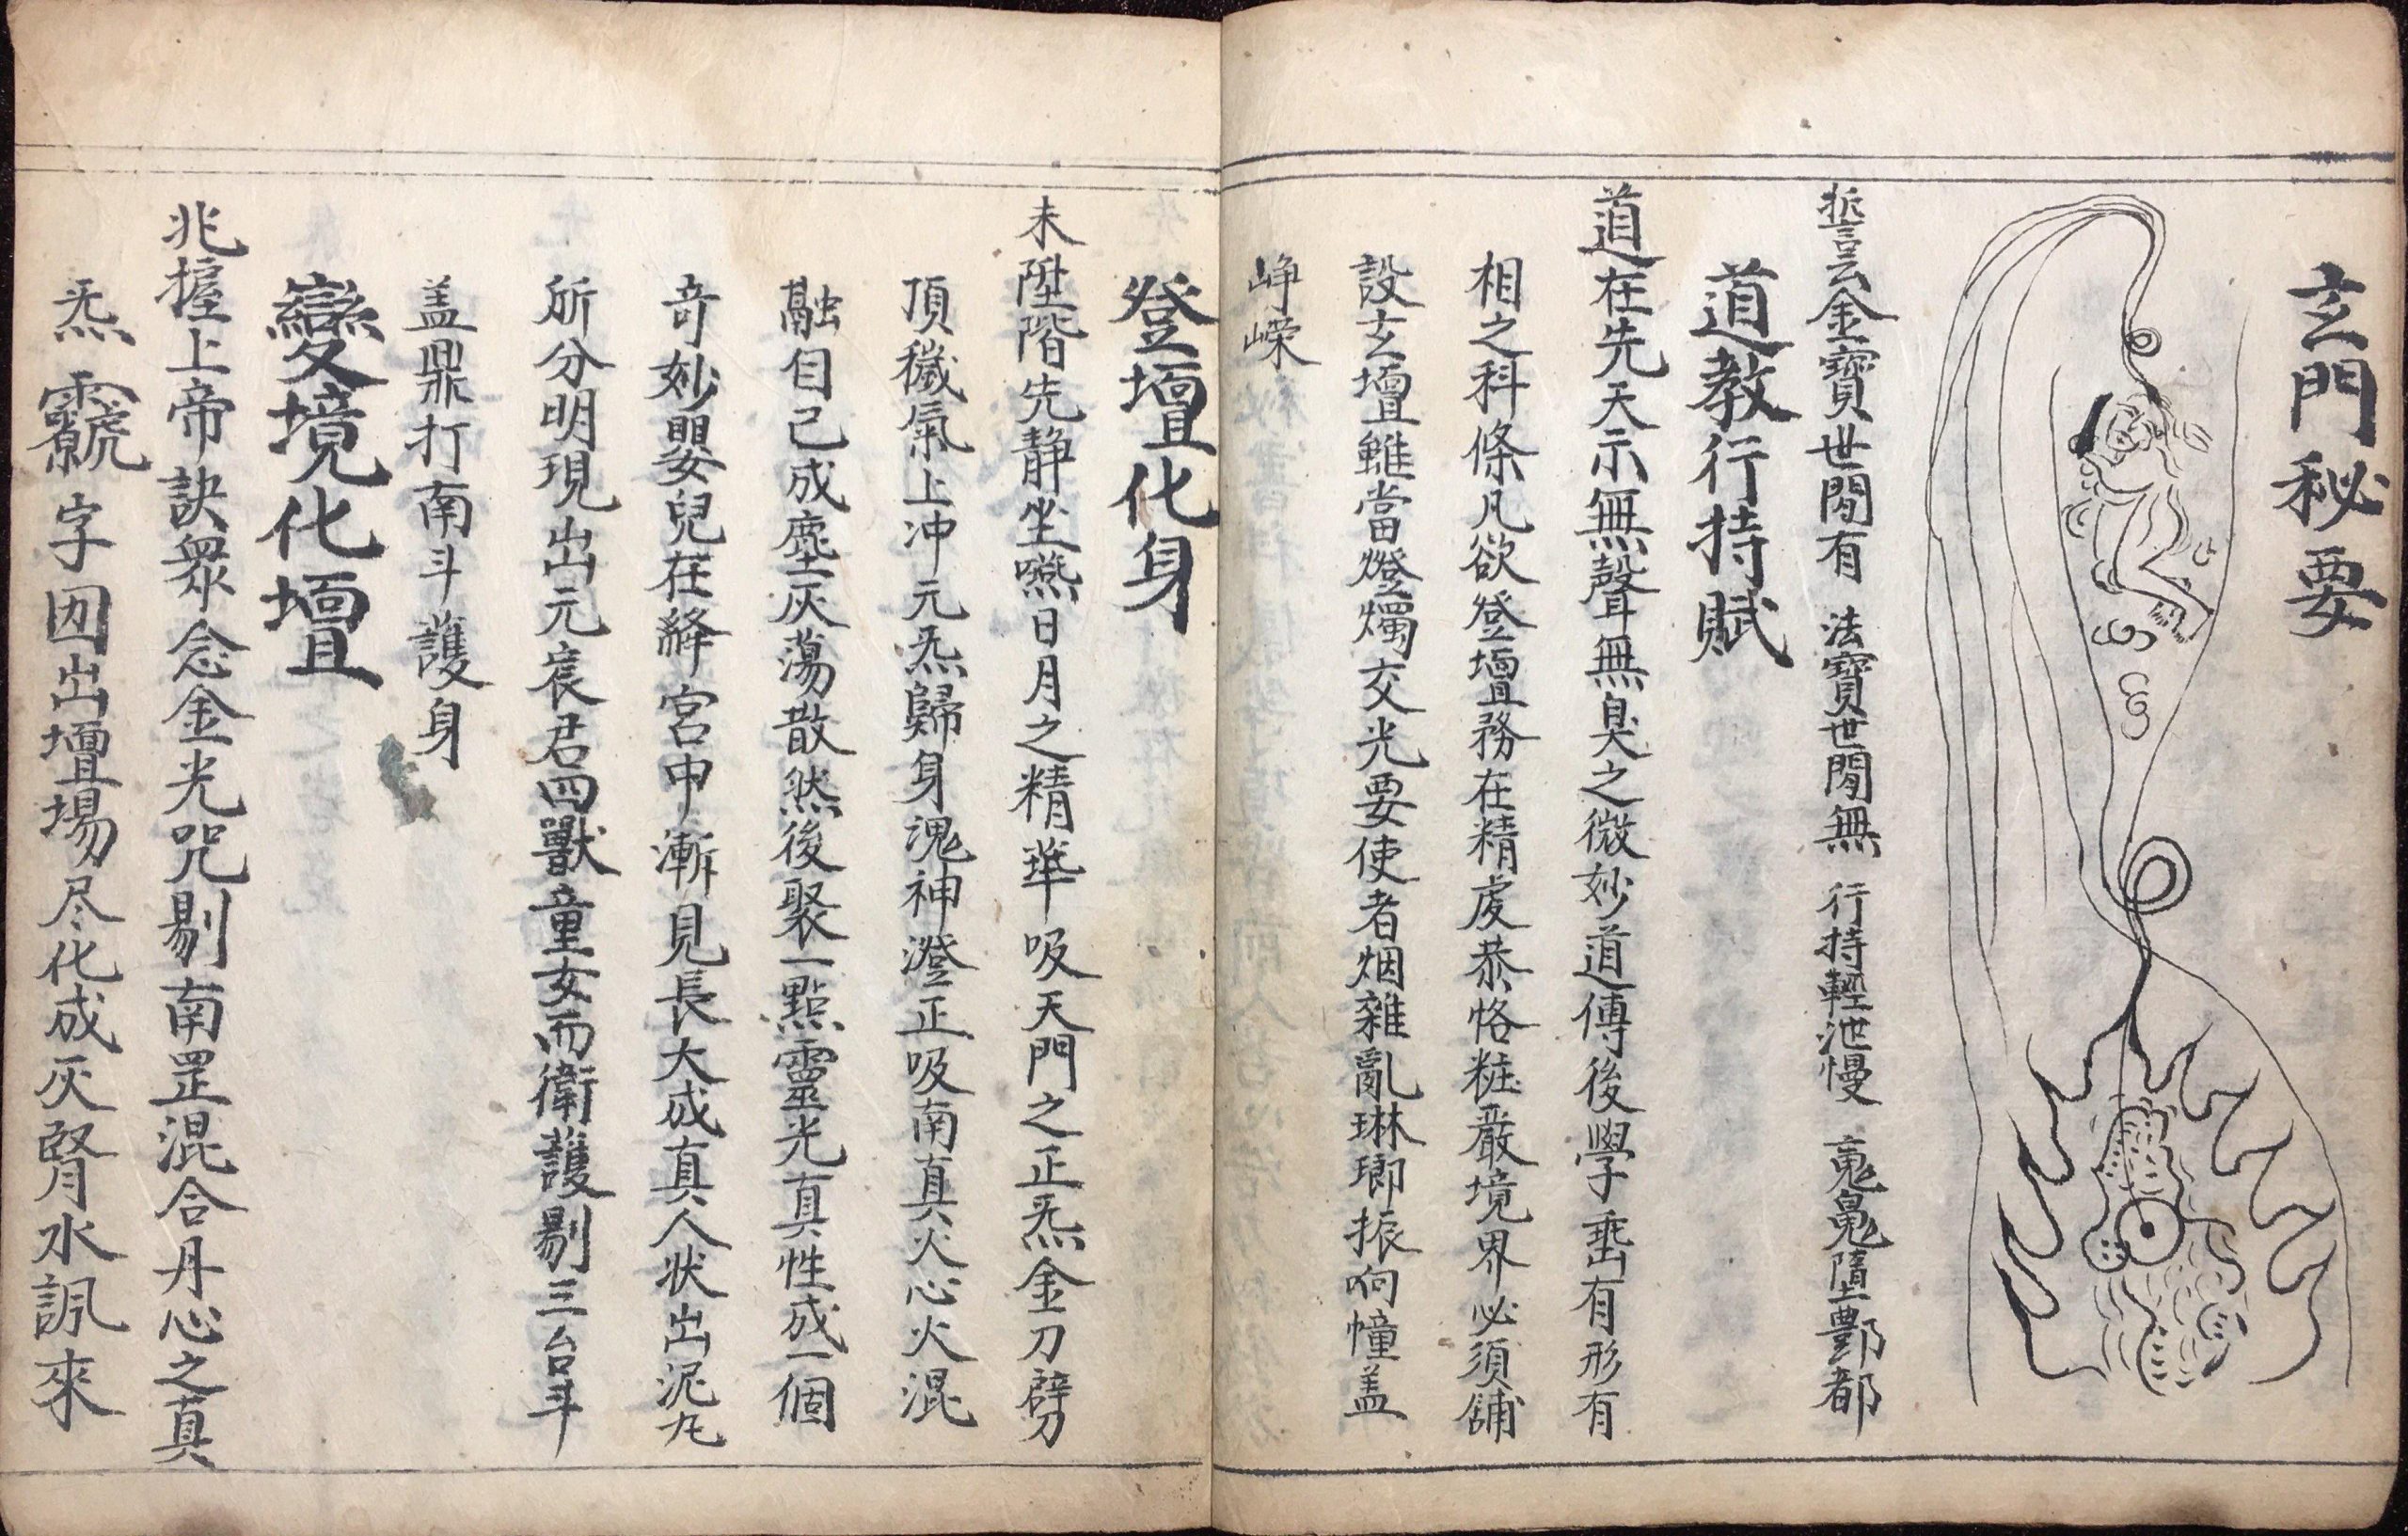 玄門秘要
誓云金寶世間有 法寶世間無 行持輕泄慢 䰟鬼墮酆都
道教行持賦
道在先天示無聲無臭之微妙道傳後學垂有形有
相之科條凡欲登壇務在精虔恭恪粧嚴境界必須舖
設玄壇雖當燈燭交光要使者烟雜亂琳瑯振响幢盖
峥嶸
登壇化身
未陞階先静坐嚥日月之精華 吸天門之正炁金刀劈
頂穢氣上冲元炁歸身魂神澄正吸南真火心火混
融自己成塵灰蕩散然後聚一點靈光真性成一個
奇妙嬰兒在絳宮中漸見長大成真人状出泥丸
所分明現出元宸君四獸童女而衛護剔三台斗
盖鼎打南斗護身
變境化壇
兆握上帝訣衆念金光咒剔南罡混合丹心之真
炁 字因出壇場尽化成灰腎水䫻來